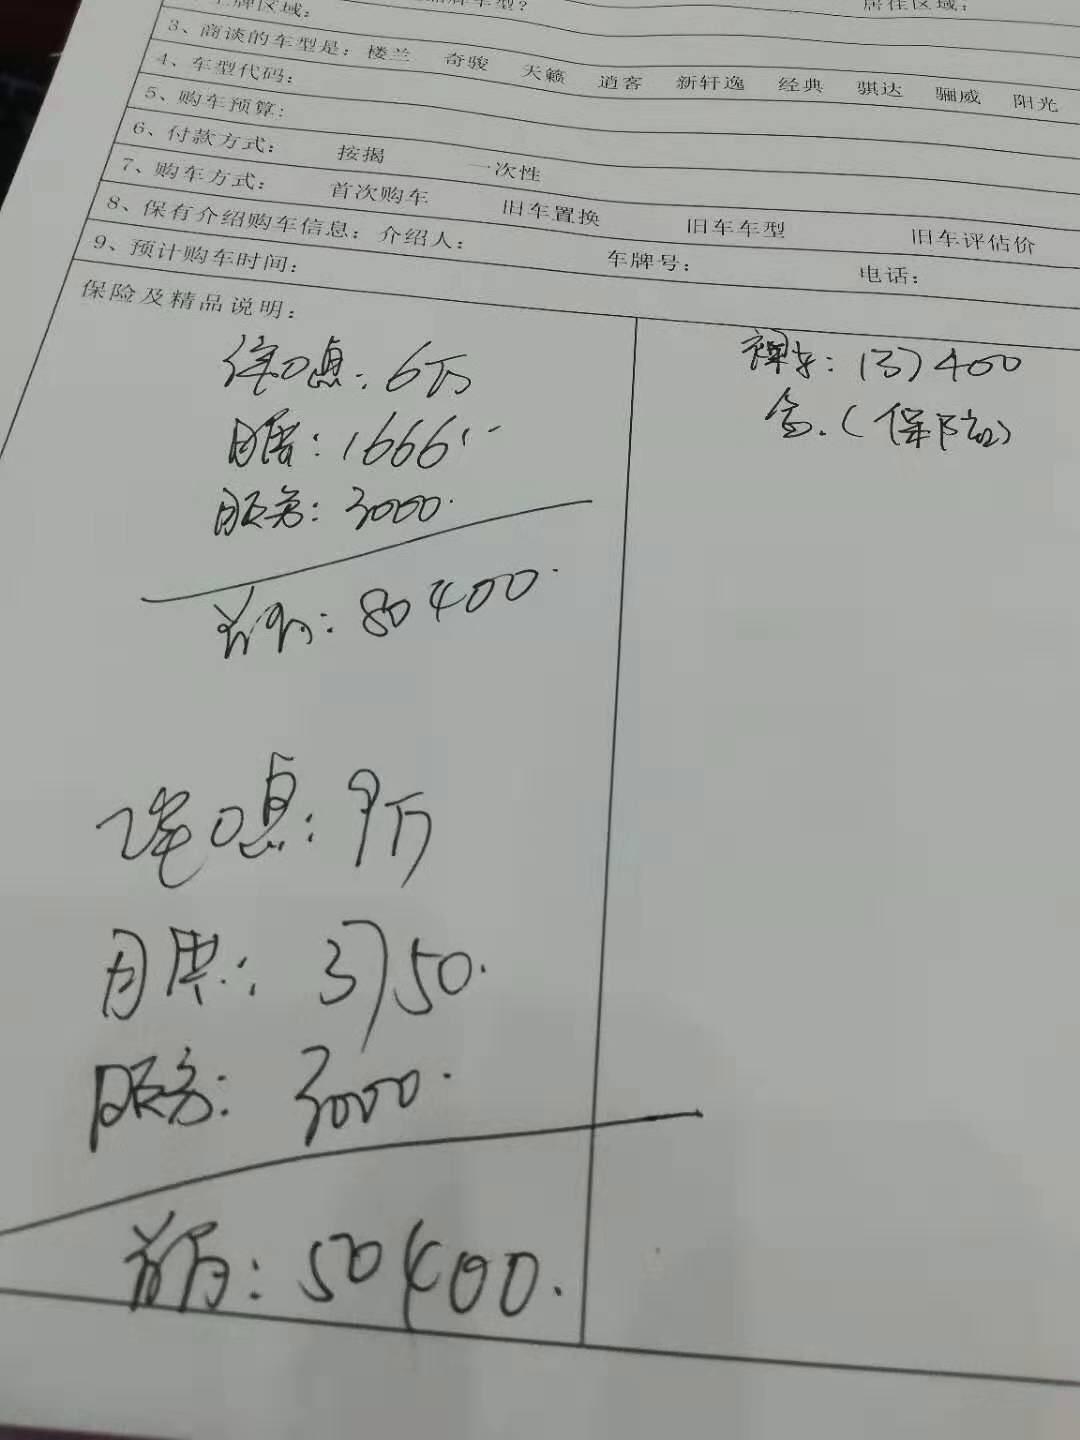 上牌区域：
牌车型？
居住区域：
3、商谈的车型是：楼兰 奇骏 天籁 逍客 新轩逸 经典 骐达 骊威 阳光
4、车型代码：
5、购车预算：
6、付款方式： 按揭 一次性
7、购车方式： 首次购车 旧车置换 旧车车型 旧车评估价
8、保有介绍购车信息：介绍人： 车牌号： 电话：
9、预计购车时间：
保险及精品说明：
息：6万
月供：1666.
服务：3000.
首付：80400.
息：9万
月供：3750.
服务：3000.
首付：50400.
裸车：137400
含.（保险）